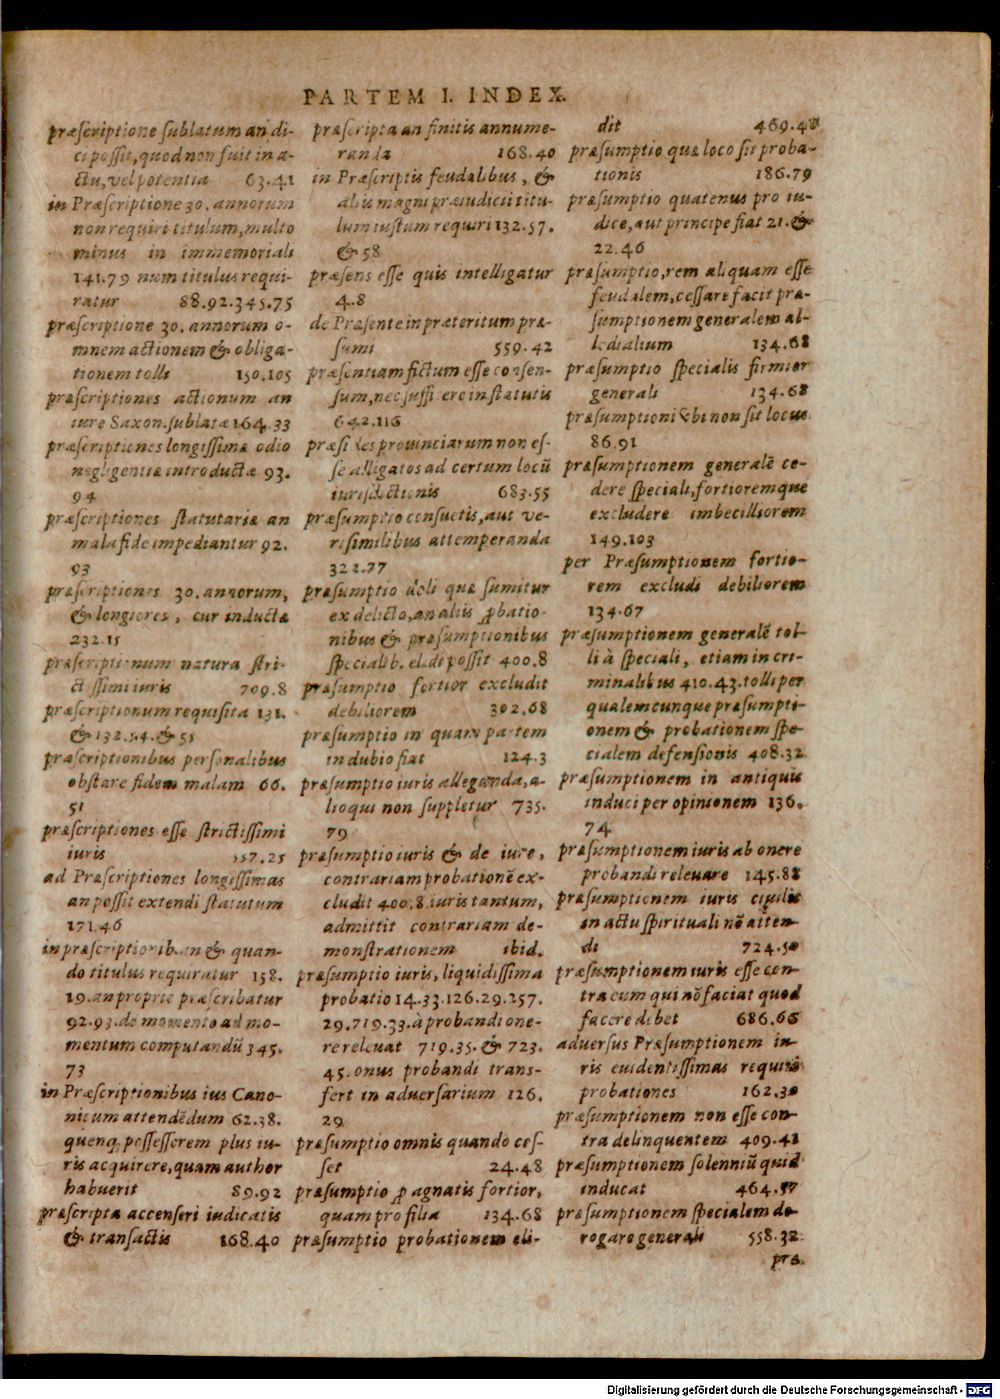 PARTEM I. INDEX.
præscriptione sublatum an di-
ci possit, quod non fuit in a-
ctu, vel potentia 63.41
in Præscriptione 30. annorum
non requiri titulum, multo
minus in immemoriali
141.79 num titulus requi-
ratur 88.92.345.75
præscriptione 30. annorum o-
mnem actionem & obliga-
tionem tolli 150.105
præscriptiones actionum an
iure Saxon. sublatæ 164.33
præscriptiones longissimæ odio
negligentiæ introductæ 93.
94
præscriptiones statutariæ an
mala fide impediantur 92.
93
præscriptiones 30. annorum,
& longiores, cur inductæ
232.15
præscriptionum natura stri-
ctissimi iuris 709.8
præscriptionum requisita 131.
& 132.54.& 55
præscriptionibus personalibus
obstare fidem malam 66.
51
præscriptiones esse strictissimi
iuris 557.25
ad Præscriptiones longissimas
an possit extendi statutum
171.46
in præscriptionib. an & quan-
do titulus requiratur 158.
19. an proprie præscribatur
92.93. de momento ad mo-
mentum computandū 345.
73
in Præscriptionibus ius Cano-
nicum attendēdum 62.38.
quenq; possessorem plus iu-
ris acquirere, quam author
habuerit 89.92
præscripta accenseri iudicatis
& transactis 168.40
præscripta an finitis annume-
randa 168.40
in Præscriptis feudalibus, &
aliis magni præiudicii titu-
lum iustum requiri 132.57.
& 58
præsens esse quis intelligatur
4.8
de Præsente in præteritum præ-
sumi 559.42
præsentiam fictum esse consen-
sum, nec sufficere in statutis
642.116
præsides prouinciarum non es-
se alligatos ad certum locū
iurisdictionis 683.55
præsumptio consuetis, aut ve-
risimilibus attemperanda
322.77
præsumptio doli quæ sumitur
ex delicto, an aliis ꝓbatio-
nibus & præsumptionibus
specialib. elidi possit 400.8
præsumptio fortior excludit
debiliorem 302.68
præsumptio in quam partem
in dubio fiat 124.3
præsumptio iuris alleganda, a-
lioqui non suppletur 735.
79
præsumptio iuris & de iure,
contrariam probationē ex-
cludit 400.8. iuris tantum,
admittit contrariam de-
monstrationem ibid.
præsumptio iuris, liquidissima
probatio 14.33.126.29.257.
29.719.33. à probandi one-
re releuat 719.35. & 723.
45. onus probandi trans-
fert in aduersarium 126.
29
præsumptio omnis quando ces-
set 24.48
præsumptio ꝓ agnatis fortior,
quam pro filia 134.68
præsumptio probationem eli-
dit 469.40
præsumptio quæ loco sit proba-
tionis 186.79
præsumptio quatenus pro iu-
dice, aut principe fiat 21. &
22.46
præsumptio, rem aliquam esse
feudalem, cessare facit præ-
sumptionem generalem al-
lodialium 134.68
præsumptio specialis firmior
generali 134.68
præsumptioni vbi non sit locus
86.91
præsumptionem generalē ce-
dere speciali, fortioremque
excludere imbecilliorem
149.103
per Præsumptionem fortio-
rem excludi debiliorem
134.67
præsumptionem generalē tol-
li à speciali, etiam in cri-
minalibus 410.43. tolli per
qualemcunque præsumpti-
onem & probationem spe-
cialem defensionis 408.32
præsumptionem in antiquis
induci per opinionem 136.
74
præsumptionem iuris ab onere
probandi releuare 145.88
præsumptionem iuris ciuilis
in actu spirituali nō atten-
di 724.50
præsumptionem iuris esse con-
tra eum qui nō faciat quod
facere debet 686.66
aduersus Præsumptionem iu-
ris euidentissimas requiri
probationes 162.30
præsumptionem non esse con-
tra delinquentem 409.41
præsumptionem solenniū quid
inducat 464.57
præsumptionem specialem de-
rogare generali 558.32
præ-
Digitalisierung gefördert durch die Deutsche Forschungsgemeinschaft - DFG